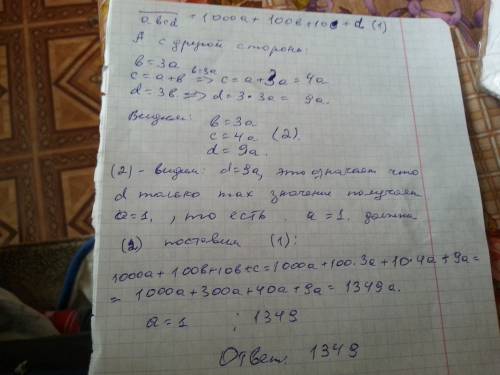 abcd = 1000a + 100b + 10c + d (1)
А с другой стороны:
b=3a
c=a+b b=3a ⟹ c=a+3a=4a
d=3b ⟹ d=3·3a= 9a.
Видим: b=3a
c=4a (2).
d=9a.
(2) - видим: d=9a, это означает что
d только max значение получает
a=1, , то есть . a=1. должна
(2) поставим (1):
1000a + 100b+10b+c=1000a+100·3a+10·4a+9a=
= 1000a+300a+40a+9a= 1349a.
a=1 ; 1349
Ответ. 1349